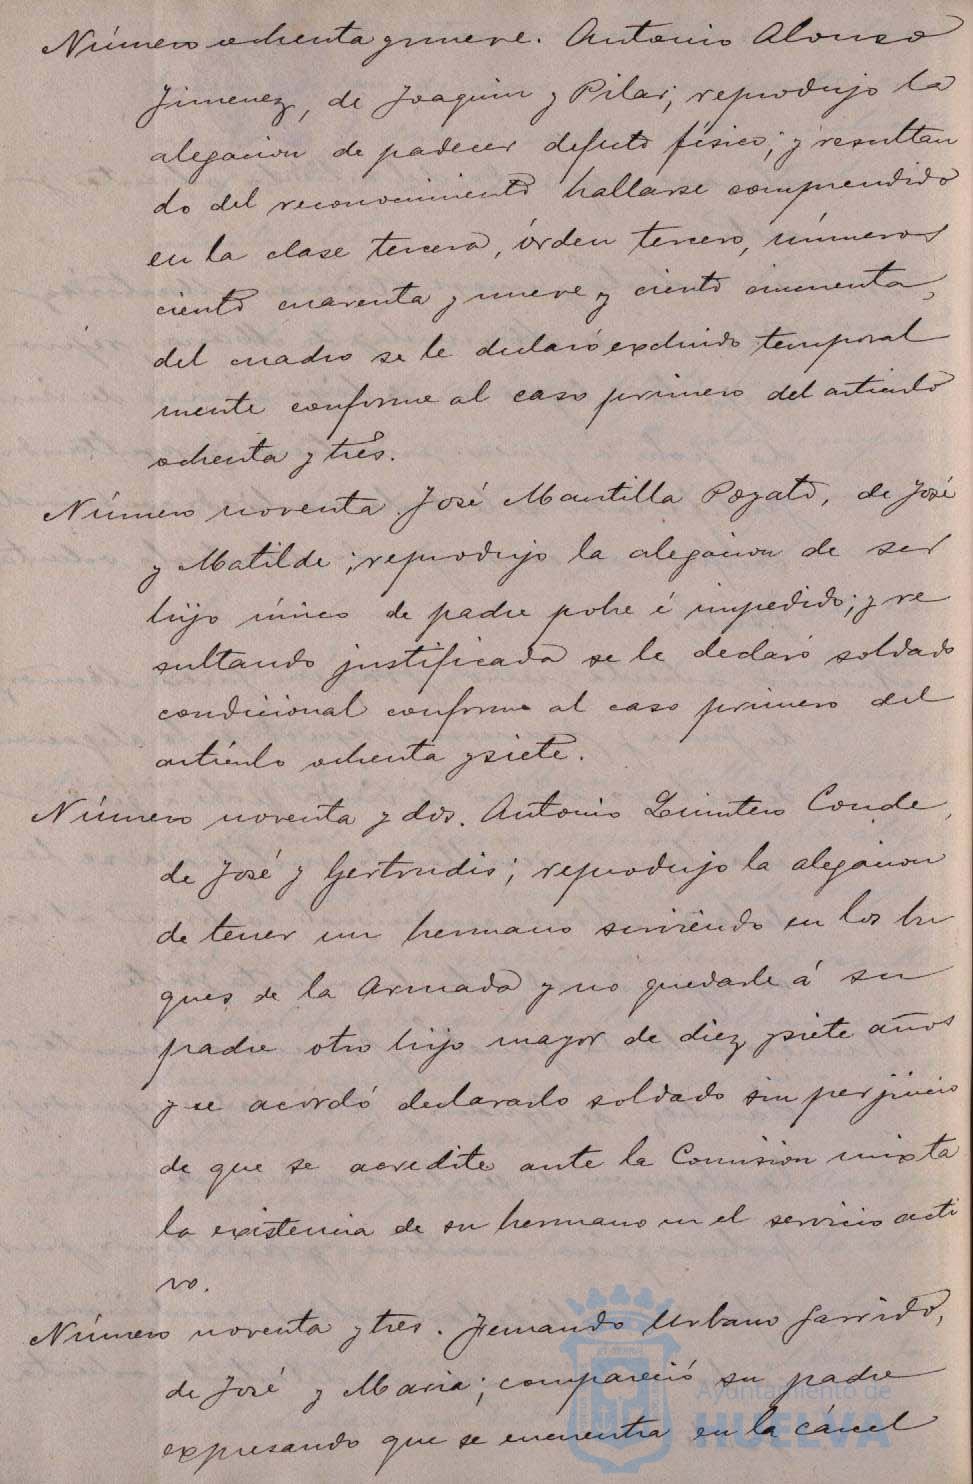 Número ochenta y nueve. Antonio Alonso
Jimenez, de Joaquin y Pilar; reprodujo la
alegacion de padecer defecto físico; y resultan
do del reconocimiento hallarse comprendido
en la clase tercera, órden tercero, números
ciento cuarenta y nueve y ciento cincuenta,
del cuadro se le declaró excluido temporal
mente conforme al caso primero del artículo
ochenta y tres.
Número noventa. José Mantilla Pozato, de José
y Matilde; reprodujo la alegacion de ser
hijo único de padre pobre é impedido; y re
sultando justificada se le declaró soldado
condicional conforme al caso primero del
artículo ochenta y siete.
Número noventa y dos. Antonio Quintero Conde,
de José y Gertrudis; reprodujo la alegacion
de tener un hermano sirviendo en los bu
ques de la Armada y no quedarle á su
padre otro hijo mayor de diez y siete años
y se acordó declararlo soldado sin perjuicio
de que se acredite ante la Comision mixta
la existencia de su hermano en el servicio acti
vo.
Número noventa y tres. Fernando Urbano Garrido,
de José y Maria; compareció su padre
expresando que se encuentra en la cárcel
Ayuntamiento de
HUELVA